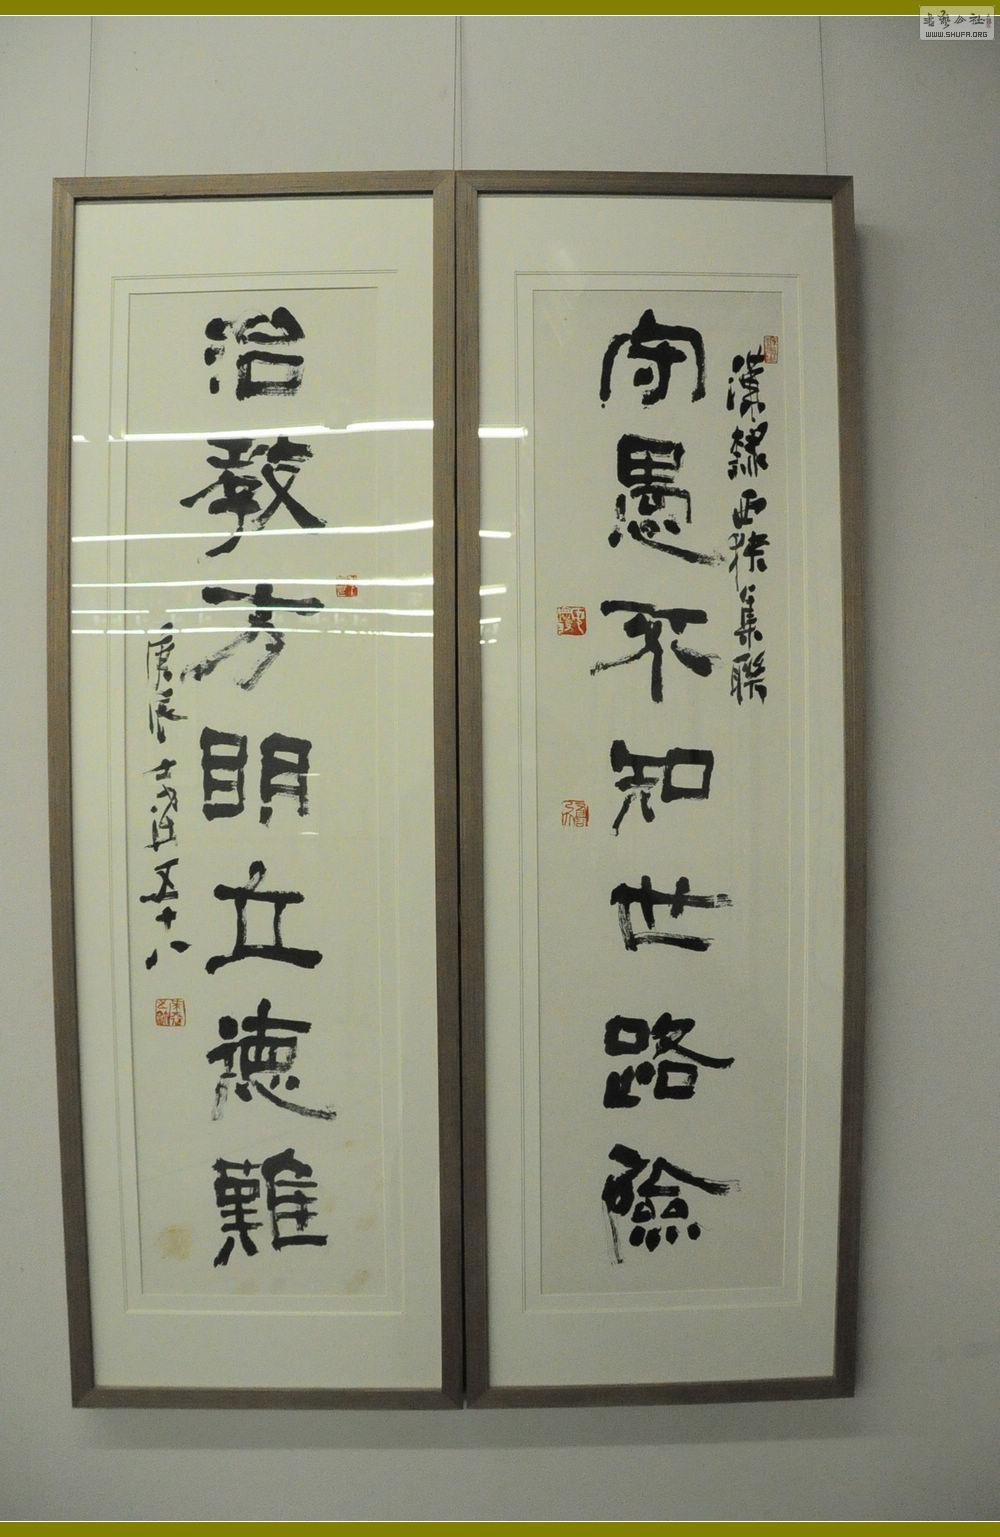 漢隸西狹集聯
守愚不知世路險
治教方明立德難
庚辰
五十八
WWW.SHUFA.ORG